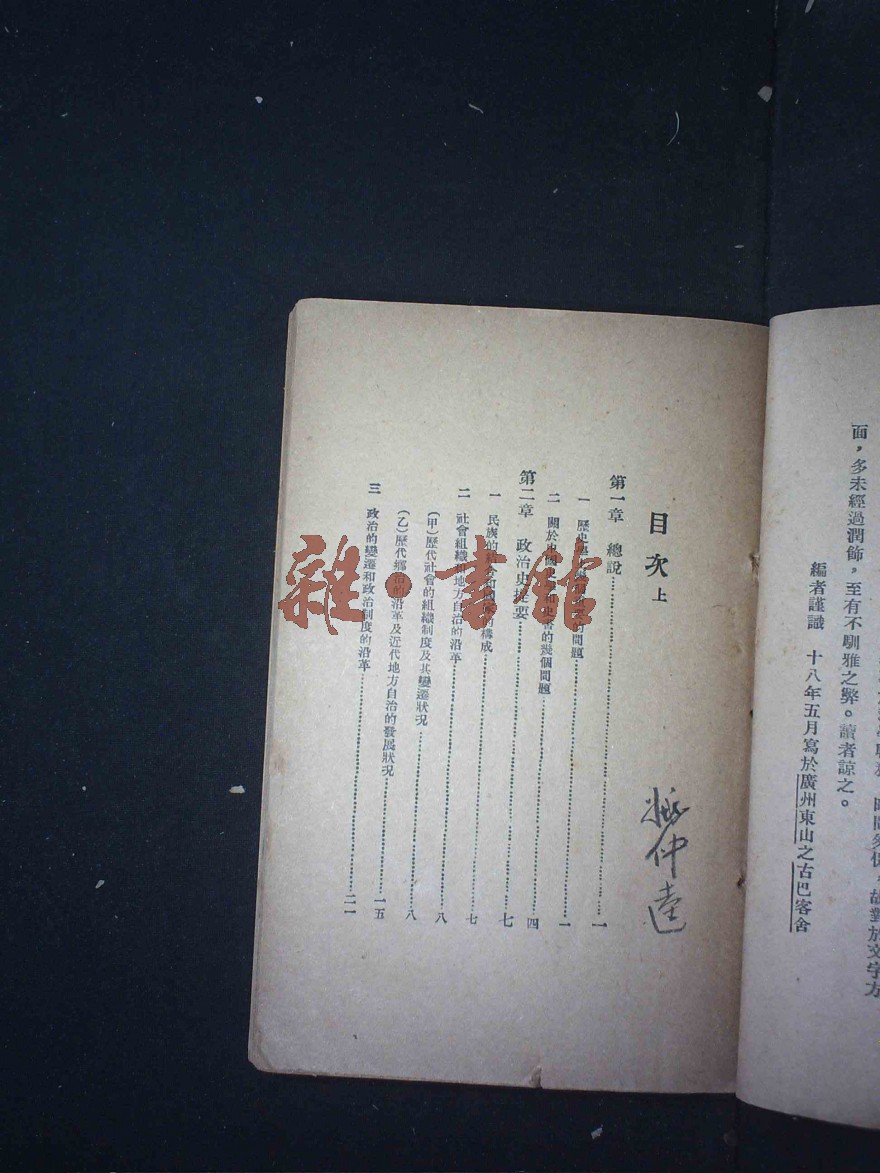 面，多未經過潤飾，至有不馴雅之弊。讀者諒之。
編者謹識　十八年五月寫於廣州東山之古巴客舍
目次上
第一章　總說 一
一　歷史 問題 一
二　關於中國史 和史書的幾個問題 四
第二章　政治史提要 七
一　民族的 構成 七
二　社會組織和地方自治的沿革 八
(甲)歷代社會的組織制度及其變遷狀況 八
(乙)歷代鄉治的沿革及近代地方自治的發展狀況 一五
三　政治的變遷和政治制度的沿革 二一
仲達
雜·書館